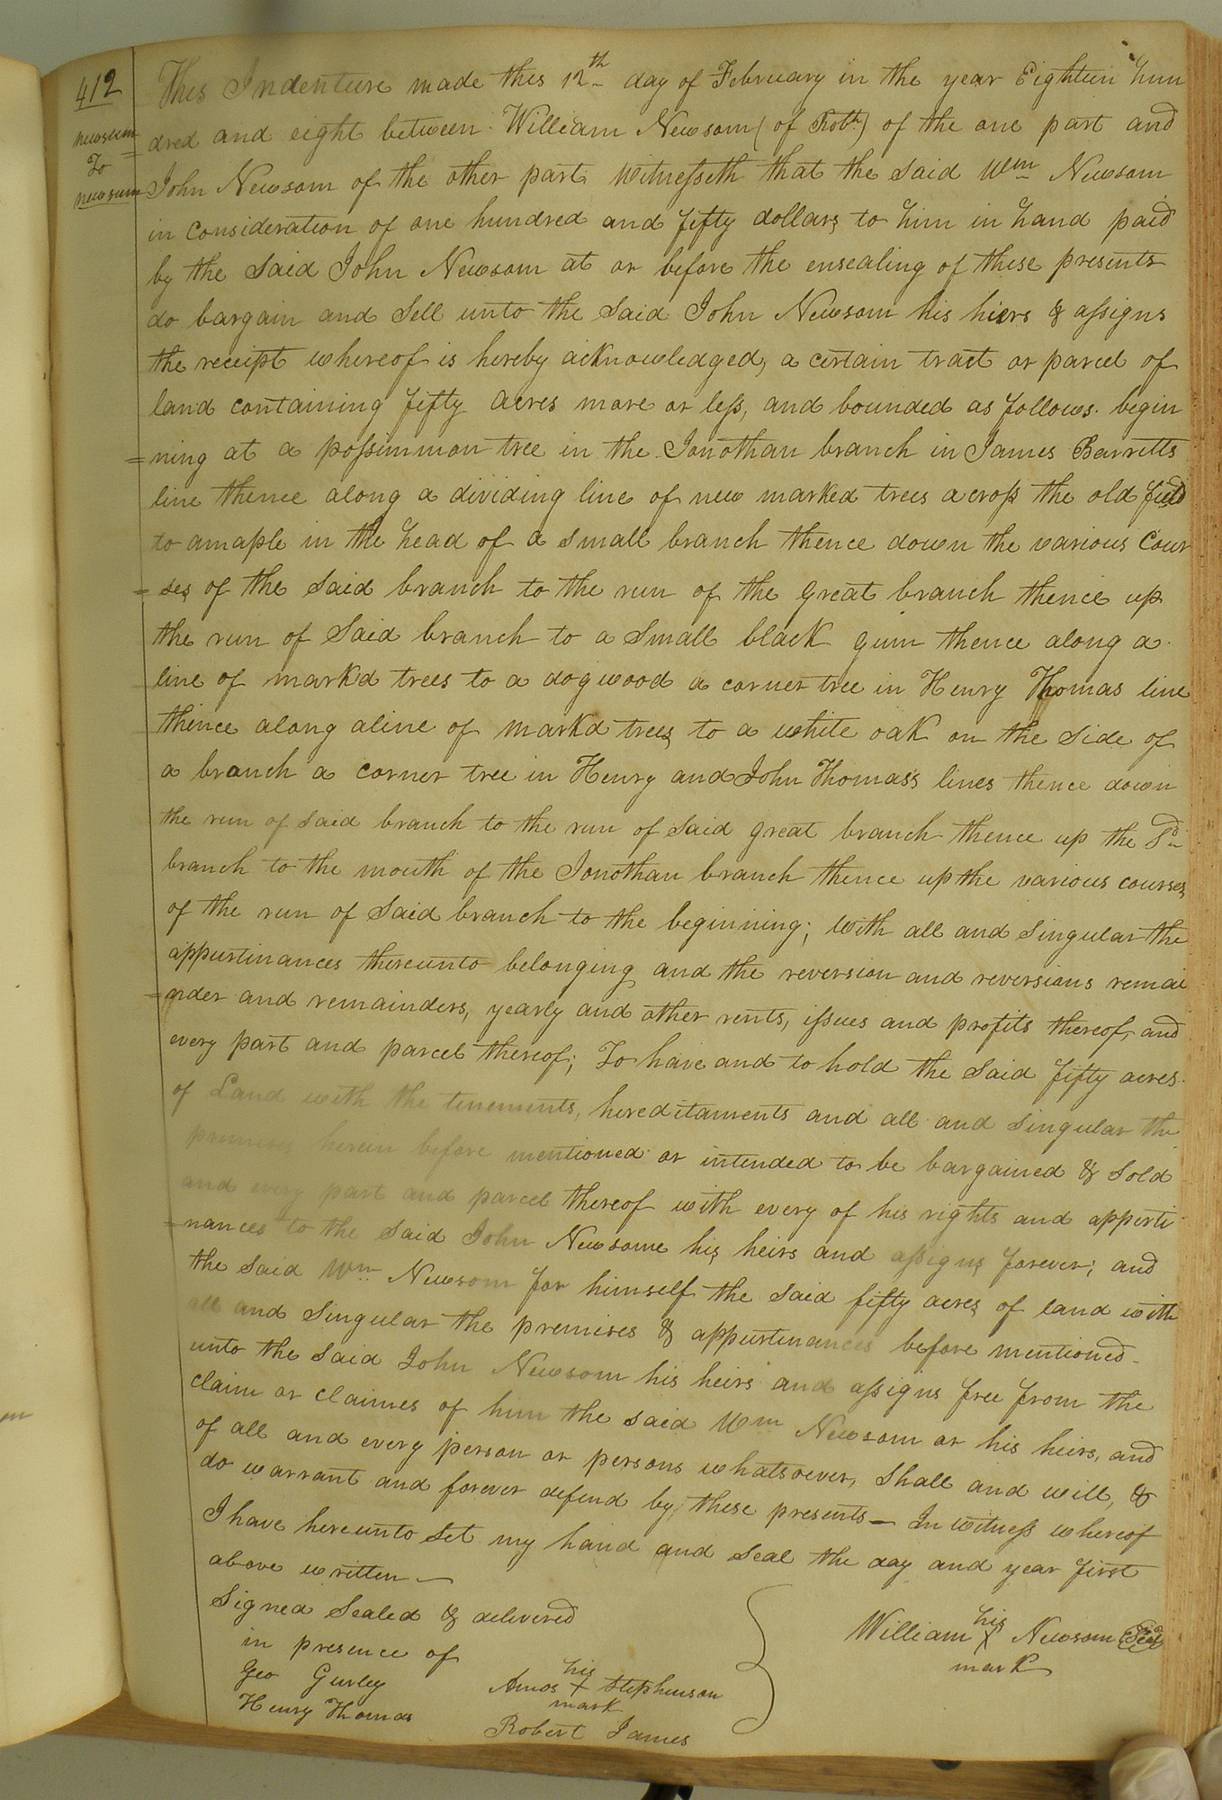 412
Newsum
To
Newsum
This Indenture made this 12th day of February in the year Eighteen hun
dred and eight between William Newsom (of Robt.) of the one part and
John Newsom of the other part Witnesseth that the said Wm Newsom
in consideration of one hundred and fifty dollars to him in hand paid
by the said John Newsom at or before the ensealing of these presents
do bargain and Sell unto the said John Newsom his hiers & assigns
the receipt whereof is hereby acknowledged, a certain tract or parcel of
land containing fifty acres more or less, and bounded as follows. begin
=ning at a possimmon tree in the Jonothan branch in James Barretts
line thence along a dividing line of new marked trees across the old field
to amaple in the head of a small branch thence down the various Cour
=ses of the said branch to the run of the great branch thence up
the run of said branch to a small black gum thence along a
line of markd trees to a dogwood a corner tree in Henry Thomas line
thence along aline of markd trees to a white oak on the side of
a branch a corner tree in Henry and John Thomas's lines thence down
the run of said branch to the run of said great branch thence up the Sd
branch to the mouth of the Jonothan branch thence up the various courses
of the run of said branch to the beginning; with all and singular the
appurtinances thereunto belonging and the reversion and reversions remai
=nder and remainders, yearly and other rents, issues and profits thereof, and
every part and parcel thereof; To have and to hold the said fifty acres
of Land with the tenements, hereditaments and all and singular the
premises herein before mentioned or intended to be bargained & sold
and every part and parcel thereof with every of his rights and apperti
=nances to the said John Newsome his heirs and assigns forever; and
the said Wm Newsom for himself the said fifty acres of land with
all and singular the premises & appurtinances before mentioned
unto the said John Newsom his heirs and assigns free from the
claim or claimes of him the said Wm Newsom or his heirs, and
of all and every person or persons whatsoever, shall and will, &
do warrant and forever defend by these presents — In witness whereof
I have hereunto set my hand and seal the day and year first
above written —
Signed Sealed & delivered
in presence of
William his X mark Newsom Seal
Geo Gurley
Amos his + mark Stephenson
Henry Thomas
Robert James